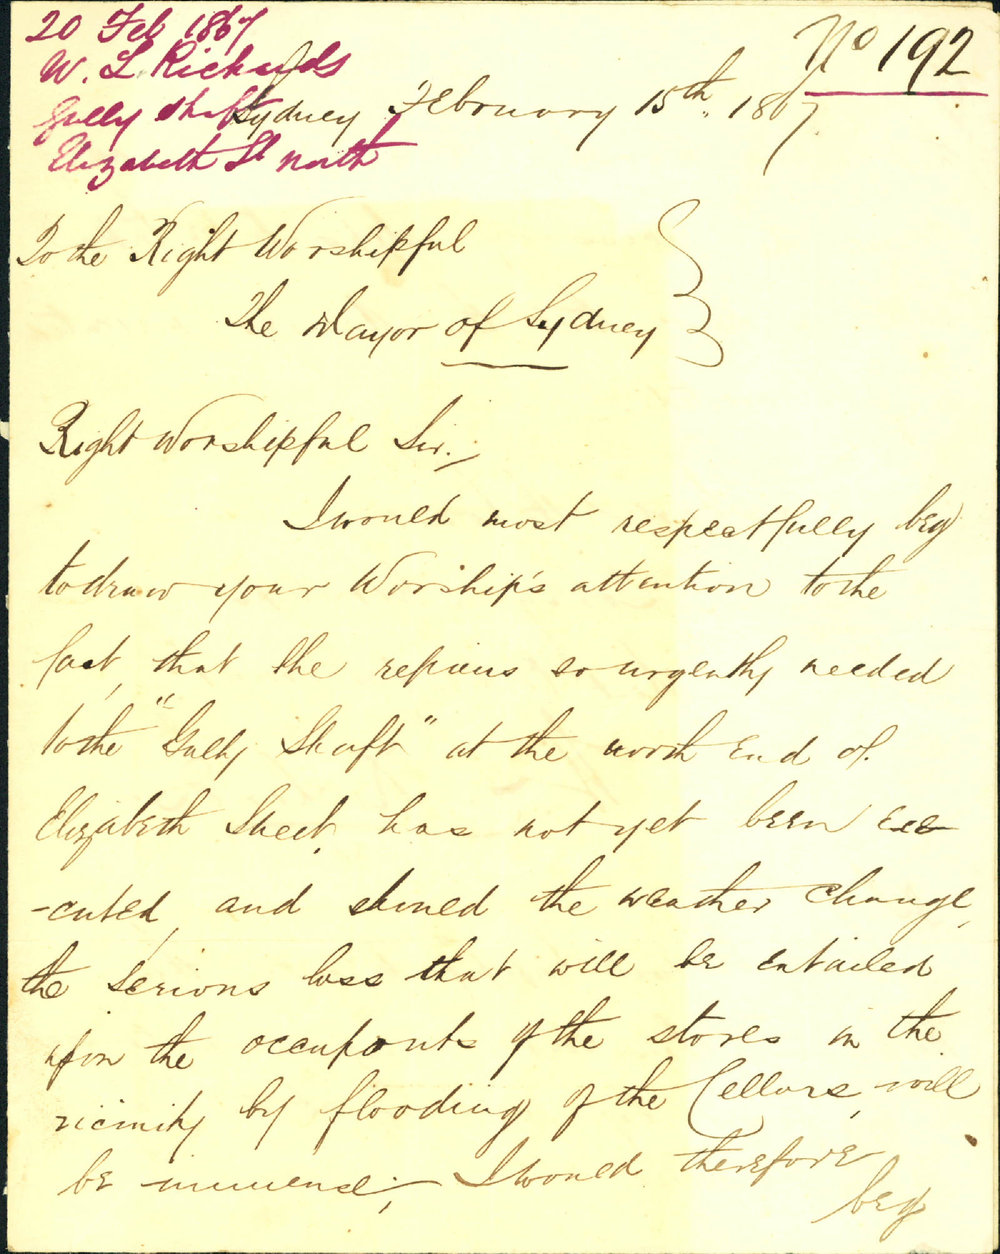 20 Feb 1867
No 192
W. L. Richards
Gully shaft
Elizabeth St north
Sydney February 15th. 1867.
To the Right Worshipful
The Mayor of Sydney
Right Worshipful Sir;
I would most respectfully beg
to draw your Worship's attention to the
fact, that the repairs so urgently needed
to the "Gully Shaft" at the north End of
Elizabeth Street, has not yet been exe
-cuted, and should the weather change,
the serious loss that will be entailed
upon the occupants of the stores in the
vicinity by flooding of the Cellars, will
be immense; I would therefore
beg